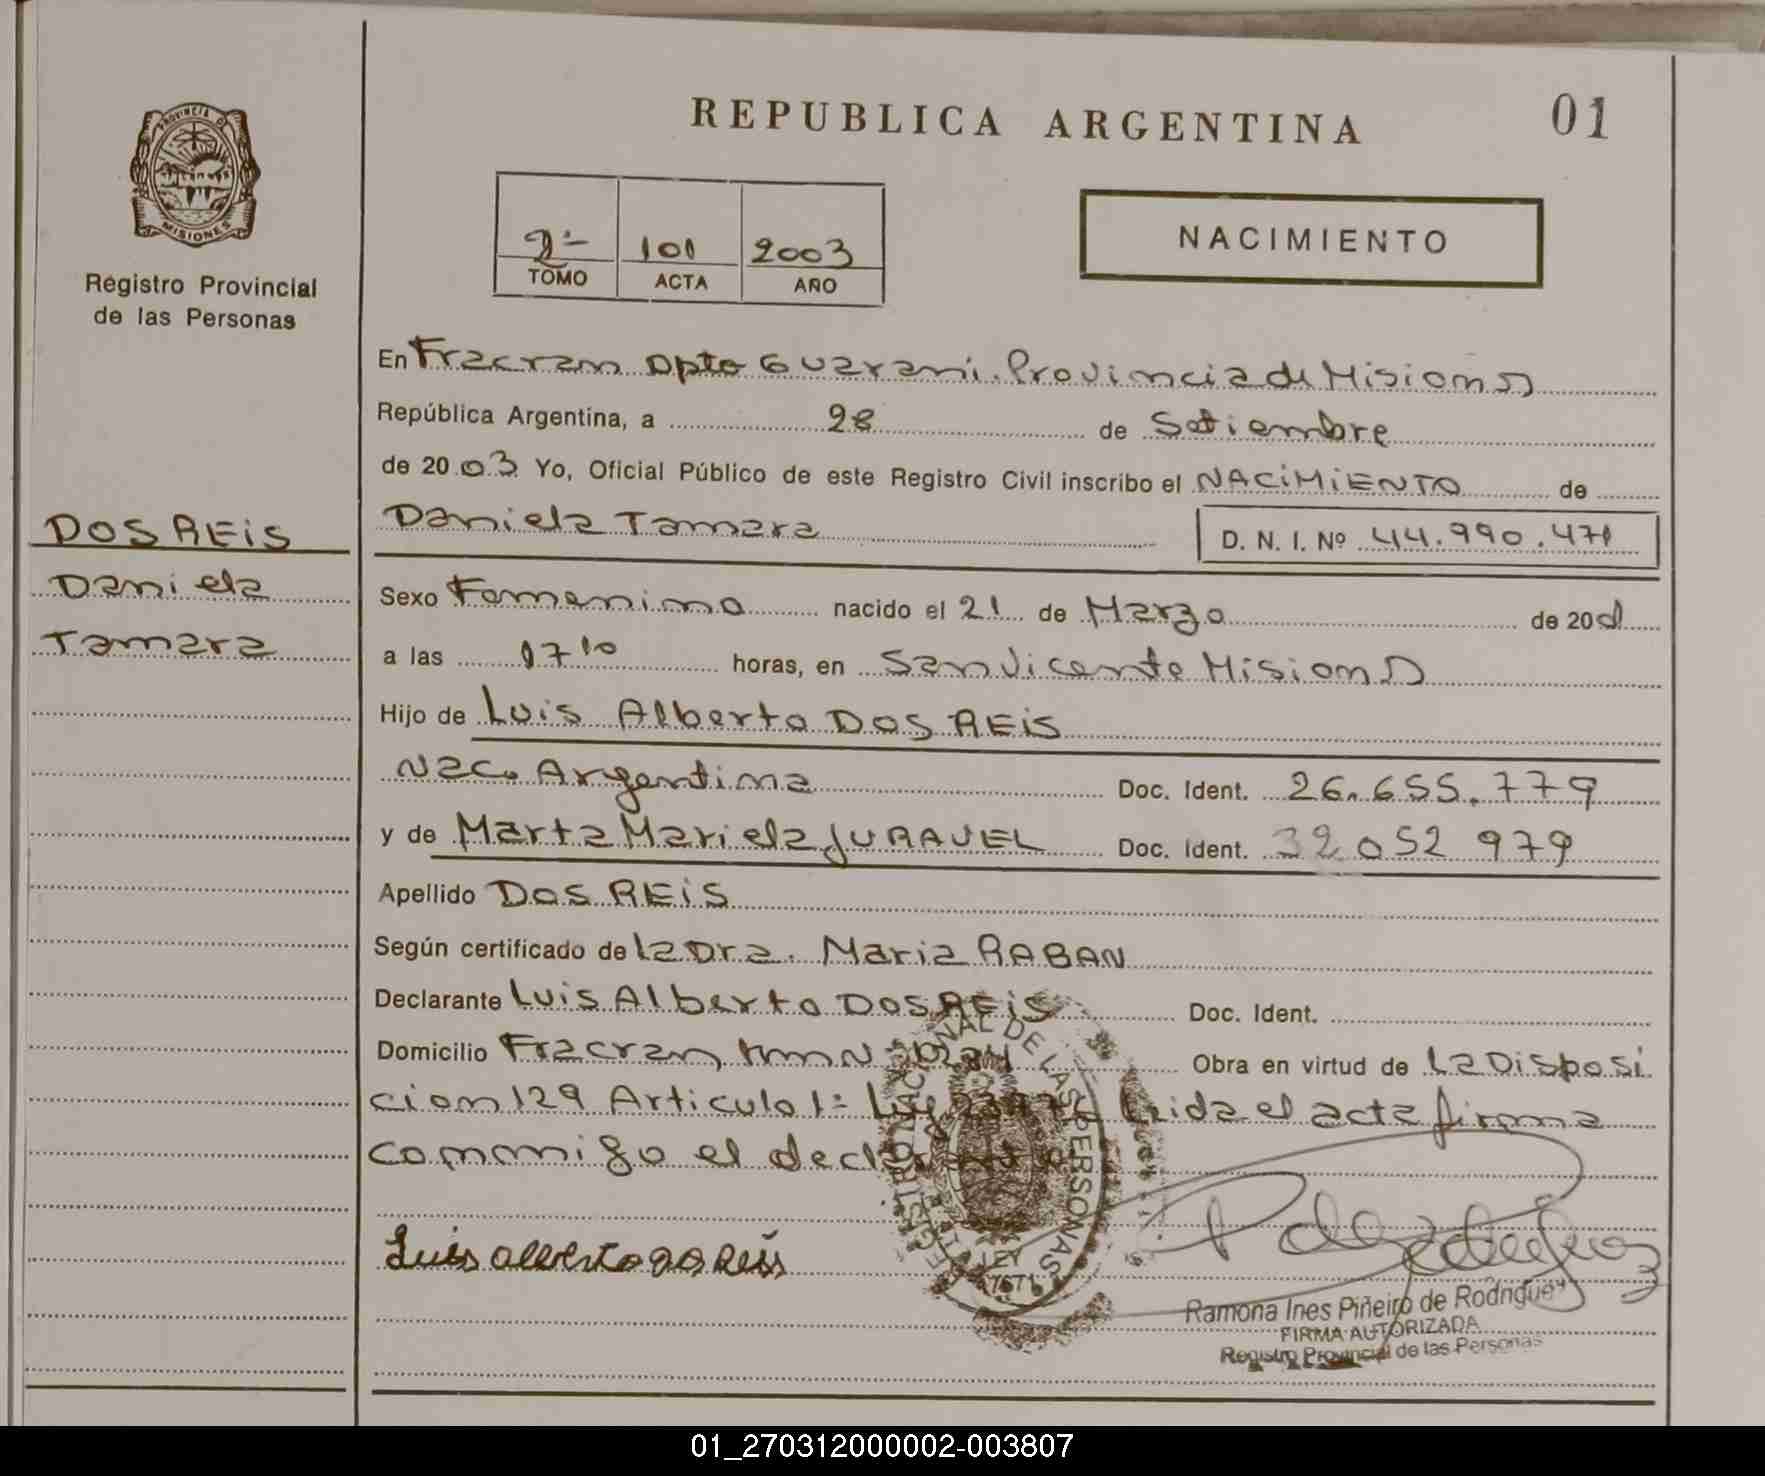 REPUBLICA ARGENTINA
01
PROVINCIA DE
MISIONES
Registro Provincial
de las Personas
2º 101 2003
TOMO ACTA AÑO
NACIMIENTO
En Fracran Dpto Guarani. Provincia de Misiones
República Argentina, a 28 de Setiembre
de 2003 Yo, Oficial Público de este Registro Civil inscribo el NACIMIENTO de
Daniela Tamara D. N. I. Nº 44.990.471
DOS REIS
Daniela
Tamara
Sexo Femenino nacido el 21 de Marzo de 20
a las 17 10 horas, en San Vicente Misiones
Hijo de Luis Alberto DOS REIS
Nac. Argentina Doc. Ident. 26.655.779
y de Marta Mariela JURAVEL Doc. Ident. 32 052 979
Apellido DOS REIS
Según certificado de la Dra. Maria RABAN
Declarante Luis Alberto DOS REIS Doc. Ident.
Domicilio Fracran, Obra en virtud de La Disposi
cion 129 Articulo 1º Ley Leida el acta firma
conmigo el declarante
REGISTRO NACIONAL DE LAS PERSONAS
LEY
17671
Luis alberto dos Reis
Ramona Ines Piñeiro de Rodriguez
FIRMA AUTORIZADA
Registro Provincial de las Personas
01_270312000002-003807